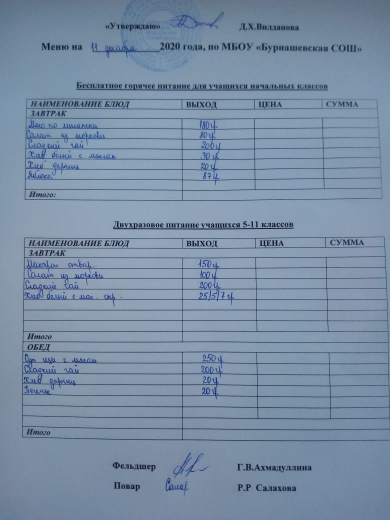 «Утверждаю» Д.Х.Вилданова
Меню на 11 декабря 2020 года, по МБОУ «Бурнашевская СОШ»
Бесплатное горячее питание для учащихся начальных классов
НАИМЕНОВАНИЕ БЛЮД ВЫХОД ЦЕНА СУММА
ЗАВТРАК
180 г
Салат из моркови 80 г
Сладкий чай 200 г
Хлеб белый с маслом 30 г
Хлеб 20 г
87 г
Итого:
Двухразовое питание учащихся 5-11 классов
НАИМЕНОВАНИЕ БЛЮД ВЫХОД ЦЕНА СУММА
ЗАВТРАК
Макароны отвар. 150 г
Салат из моркови 100 г
Сладкий чай 200 г
Хлеб белый с мас. сыр. 25/5/7 г
Итого
ОБЕД
Суп щи с мясом 250 г
Сладкий чай 200 г
Хлеб 20 г
Печенье 20 г
Итого
Фельдшер Г.В.Ахмадуллина
Повар Р.Р Салахова